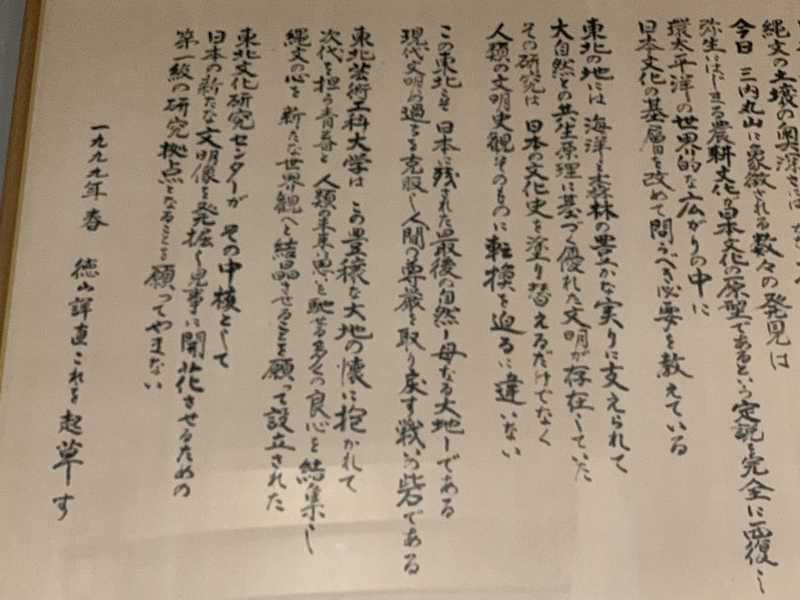 縄文の土壌の奥深さは
今日 三内丸山に象徴される数々の発見は
弥生にはじまる農耕文化が日本文化の原型であるという定説を完全に
環太平洋の世界的な広がりの中に
日本文化の基層を改めて問うべき必要を教えている
東北の地には 海洋と森林の豊かな実りに支えられて
大自然との共生原理に基づく優れた文明が存在していた
その研究は 日本の文化史を塗り替えるだけでなく
人類の文明史観そのものに転換を迫るに違いない
この東北こそ 日本に残された最後の自然－母なる大地－である
現代文明の過ちを克服し人間の尊厳を取り戻す戦いの砦である
東北芸術工科大学は この豊穣な大地の懐に抱かれて
次代を担う青春と 人類の未来に思いを馳せる多くの良心を結集し
縄文の心を 新たな世界観へと結晶させることを願って設立された
東北文化研究センターが その中核として
日本の新たな文明像を発掘し見事に開花させるための
第一級の研究拠点となることを願ってやまない
一九九九年 春 徳山詳直これを起草す